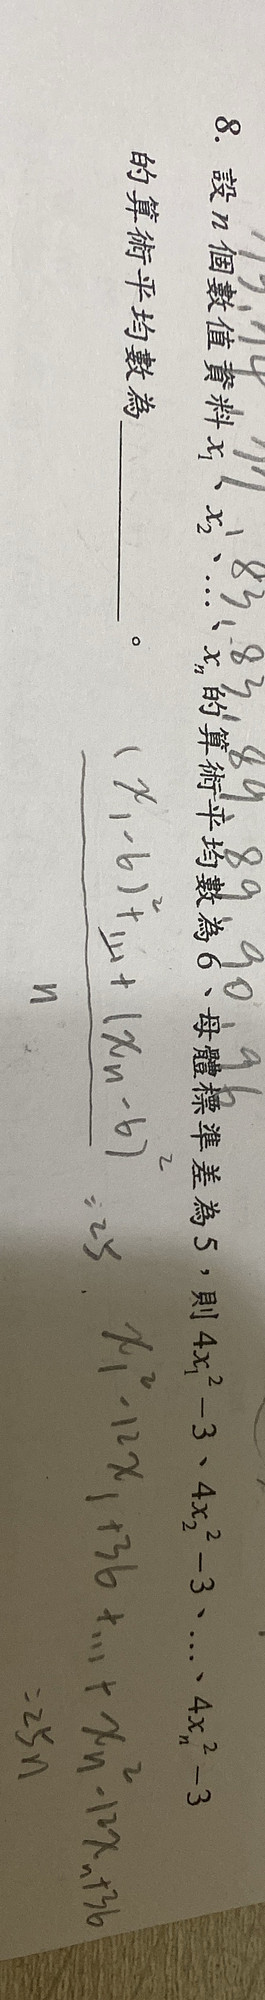 8. 設 n 個數值資料 x₁、x₂、…、xₙ 的算術平均數為 6、母體標準差為 5，則 4x₁²－3、4x₂²－3、…、4xₙ²－3
的算術平均數為＿＿＿＿＿＿。
(x₁-6)²+…+(xₙ-6)²
n
=25
x₁²-12x₁+36+…+xₙ²-12xₙ+36
=25n